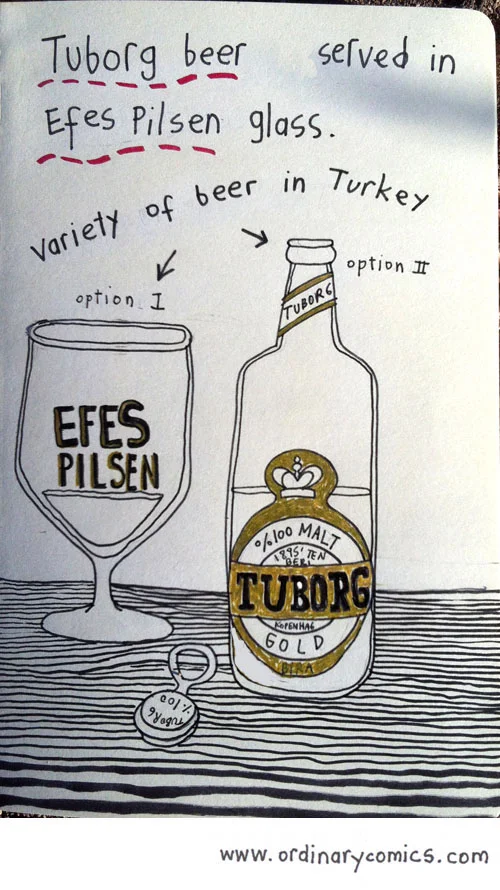 Tuborg beer served in
Efes Pilsen glass.
variety of beer in Turkey
option I
option II
TUBORG
EFES
PILSEN
%100 MALT
1895' TEN
BERİ
TUBORG
KOPENHAG
GOLD
BİRA
TUBORG
%100
www.ordinarycomics.com